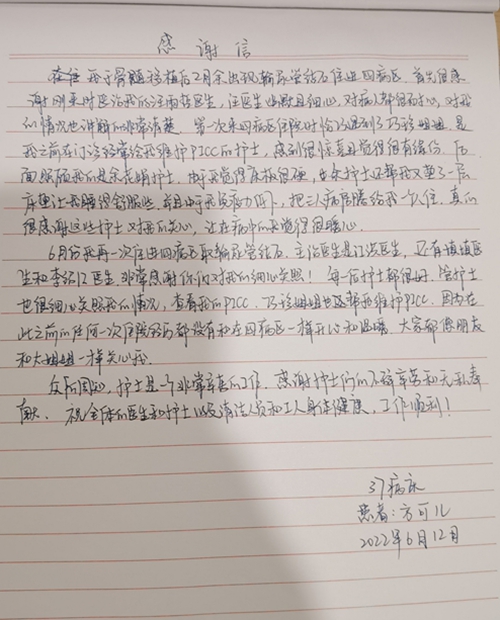 感谢信
在住 我于骨髓移植后2月余出现输尿管结石住进四病区。首先很感
谢刚来时医治我的汪雨哲医生,汪医生幽默且细心,对病人都很有耐心,对我
的情况也讲解的非常清楚。第一次来四病区住院时恰巧遇到了巧珍姐姐,是
我之前在门诊经常给我维护PICC的护士,感到很惊喜且觉得很有缘份。后
面照顾我的是余志娟护士,由于我觉得床板很硬,也余护士还帮我又垫了一层
床垫让我睡得舒服些,并且由于我免疫力低下,把三人病房腾给我一个人住,真的
很感谢这些护士对我的关心,让在病中的我觉得很暖心。
6月份我再一次住进四病区取输尿管结石。主治医生是江洪医生,还有镇镇医
生和李经仁医生,非常感谢你们对我的细心关照!每一后护士都很好,管护士
也很细心关照我的情况,查看我的PICC,巧珍姐姐也还帮我维护PICC。因为在
此之前的任何一次住院经历都没有和在四病区一样开心和温暖,大家都像朋友
和大姐姐一样关心我。
众所周知,护士是一个非常辛苦的工作,感谢护士们的不辞辛劳和无私奉
献、祝全体的医生和护士以及清洁人员和工人身体健康,工作顺利!
37病床
患者:方可儿
2022年6月12日